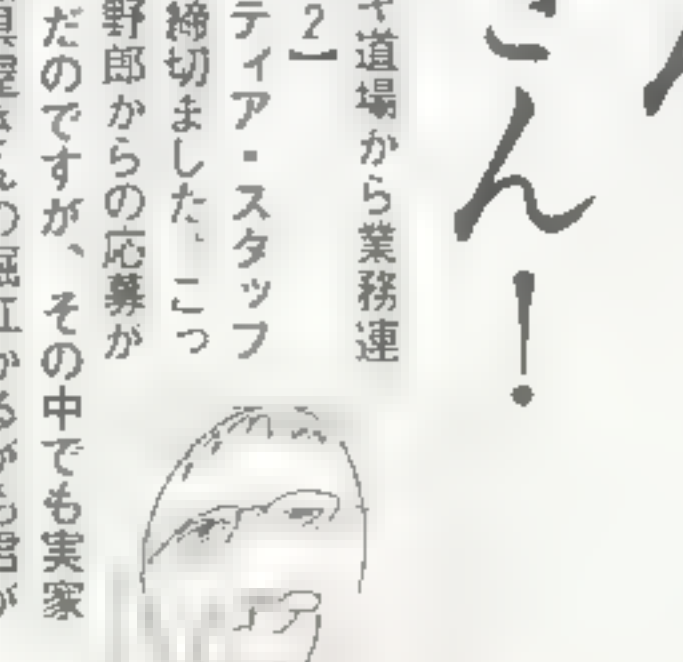 さん！
道場から業務連
2】
ティア・スタッフ
締切ました、こっ
野郎からの応募が
だのですが、その中でも実家